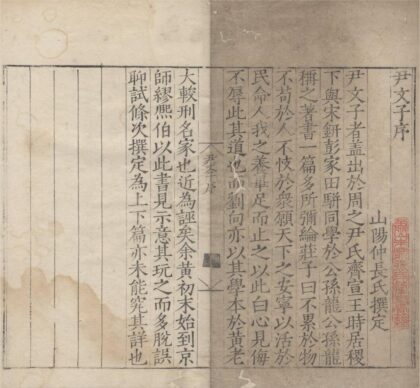 尹文子序
山陽仲長氏撰定
尹文子者蓋出於周之尹氏齊宣王時居稷
下與宋鈃彭蒙田駢同學於公孫龍公孫龍
稱之著書一篇多所彌綸莊子曰不累於物
不苟於人不忮於衆願天下之安寧以活於
民命人我之養畢足而止之以此白心見侮
不辱此其道也而劉向亦以其學本於黃老
尹文子序
大較刑名家也近為誣矣余黃初末始到京
師繆熙伯以此書見示意甚玩之而多脫誤
聊試條次撰定為上下篇亦未能究其詳也